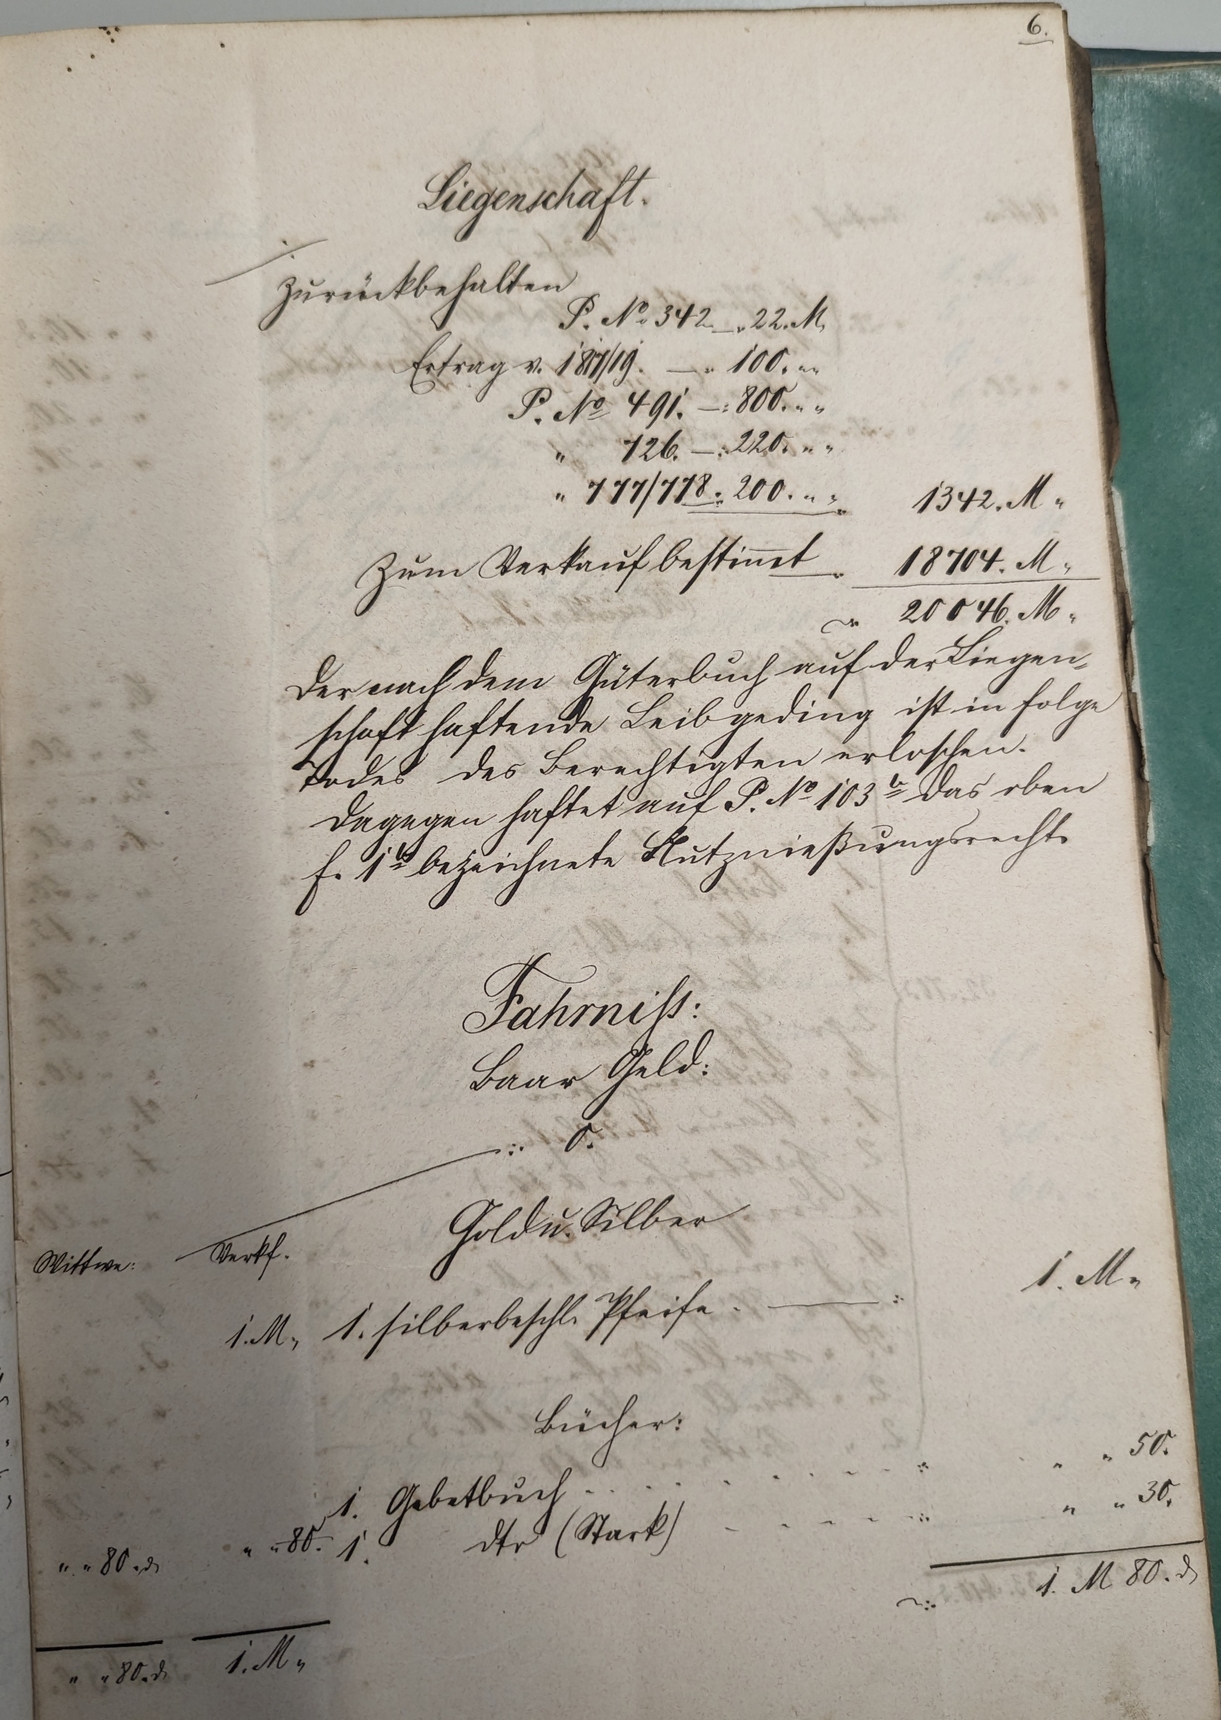 6.
Liegenschaft.
Zurückbehalten
P. No 342 — „ 22. M.
Ertrag v. 187/19. — „ 100. „ „
P. No 491. —: 800. „ „
„ 126. —: 220. „ „
„ 777/778 : 200. „ „ 1342. M „
Zum Verkauf bestimmt 18704. M „
20046. M „
Der nach dem Güterbuch auf der Liegen-
schaft haftende Leibgeding ist in Folge
Todes des Berechtigten erloschen.
Dagegen haftet auf P. No 103 b das oben
f. 1 b bezeichnete Nutznießungsrecht.
Fahrniss:
Baar Geld:
—:: 0.
Gold u. Silber
Wittwe: Verkf.
1. M „ 1. silberbeschl. Pfeife. — : 1. M „
Bücher:
1. Gebetbuch . . . . . . : „ „ 50.
„ „ 80. d „ „ 80. 1. dto (Stark) - - - - : „ „ 30.
1. M 80. d
„ „ 80. d 1. M „